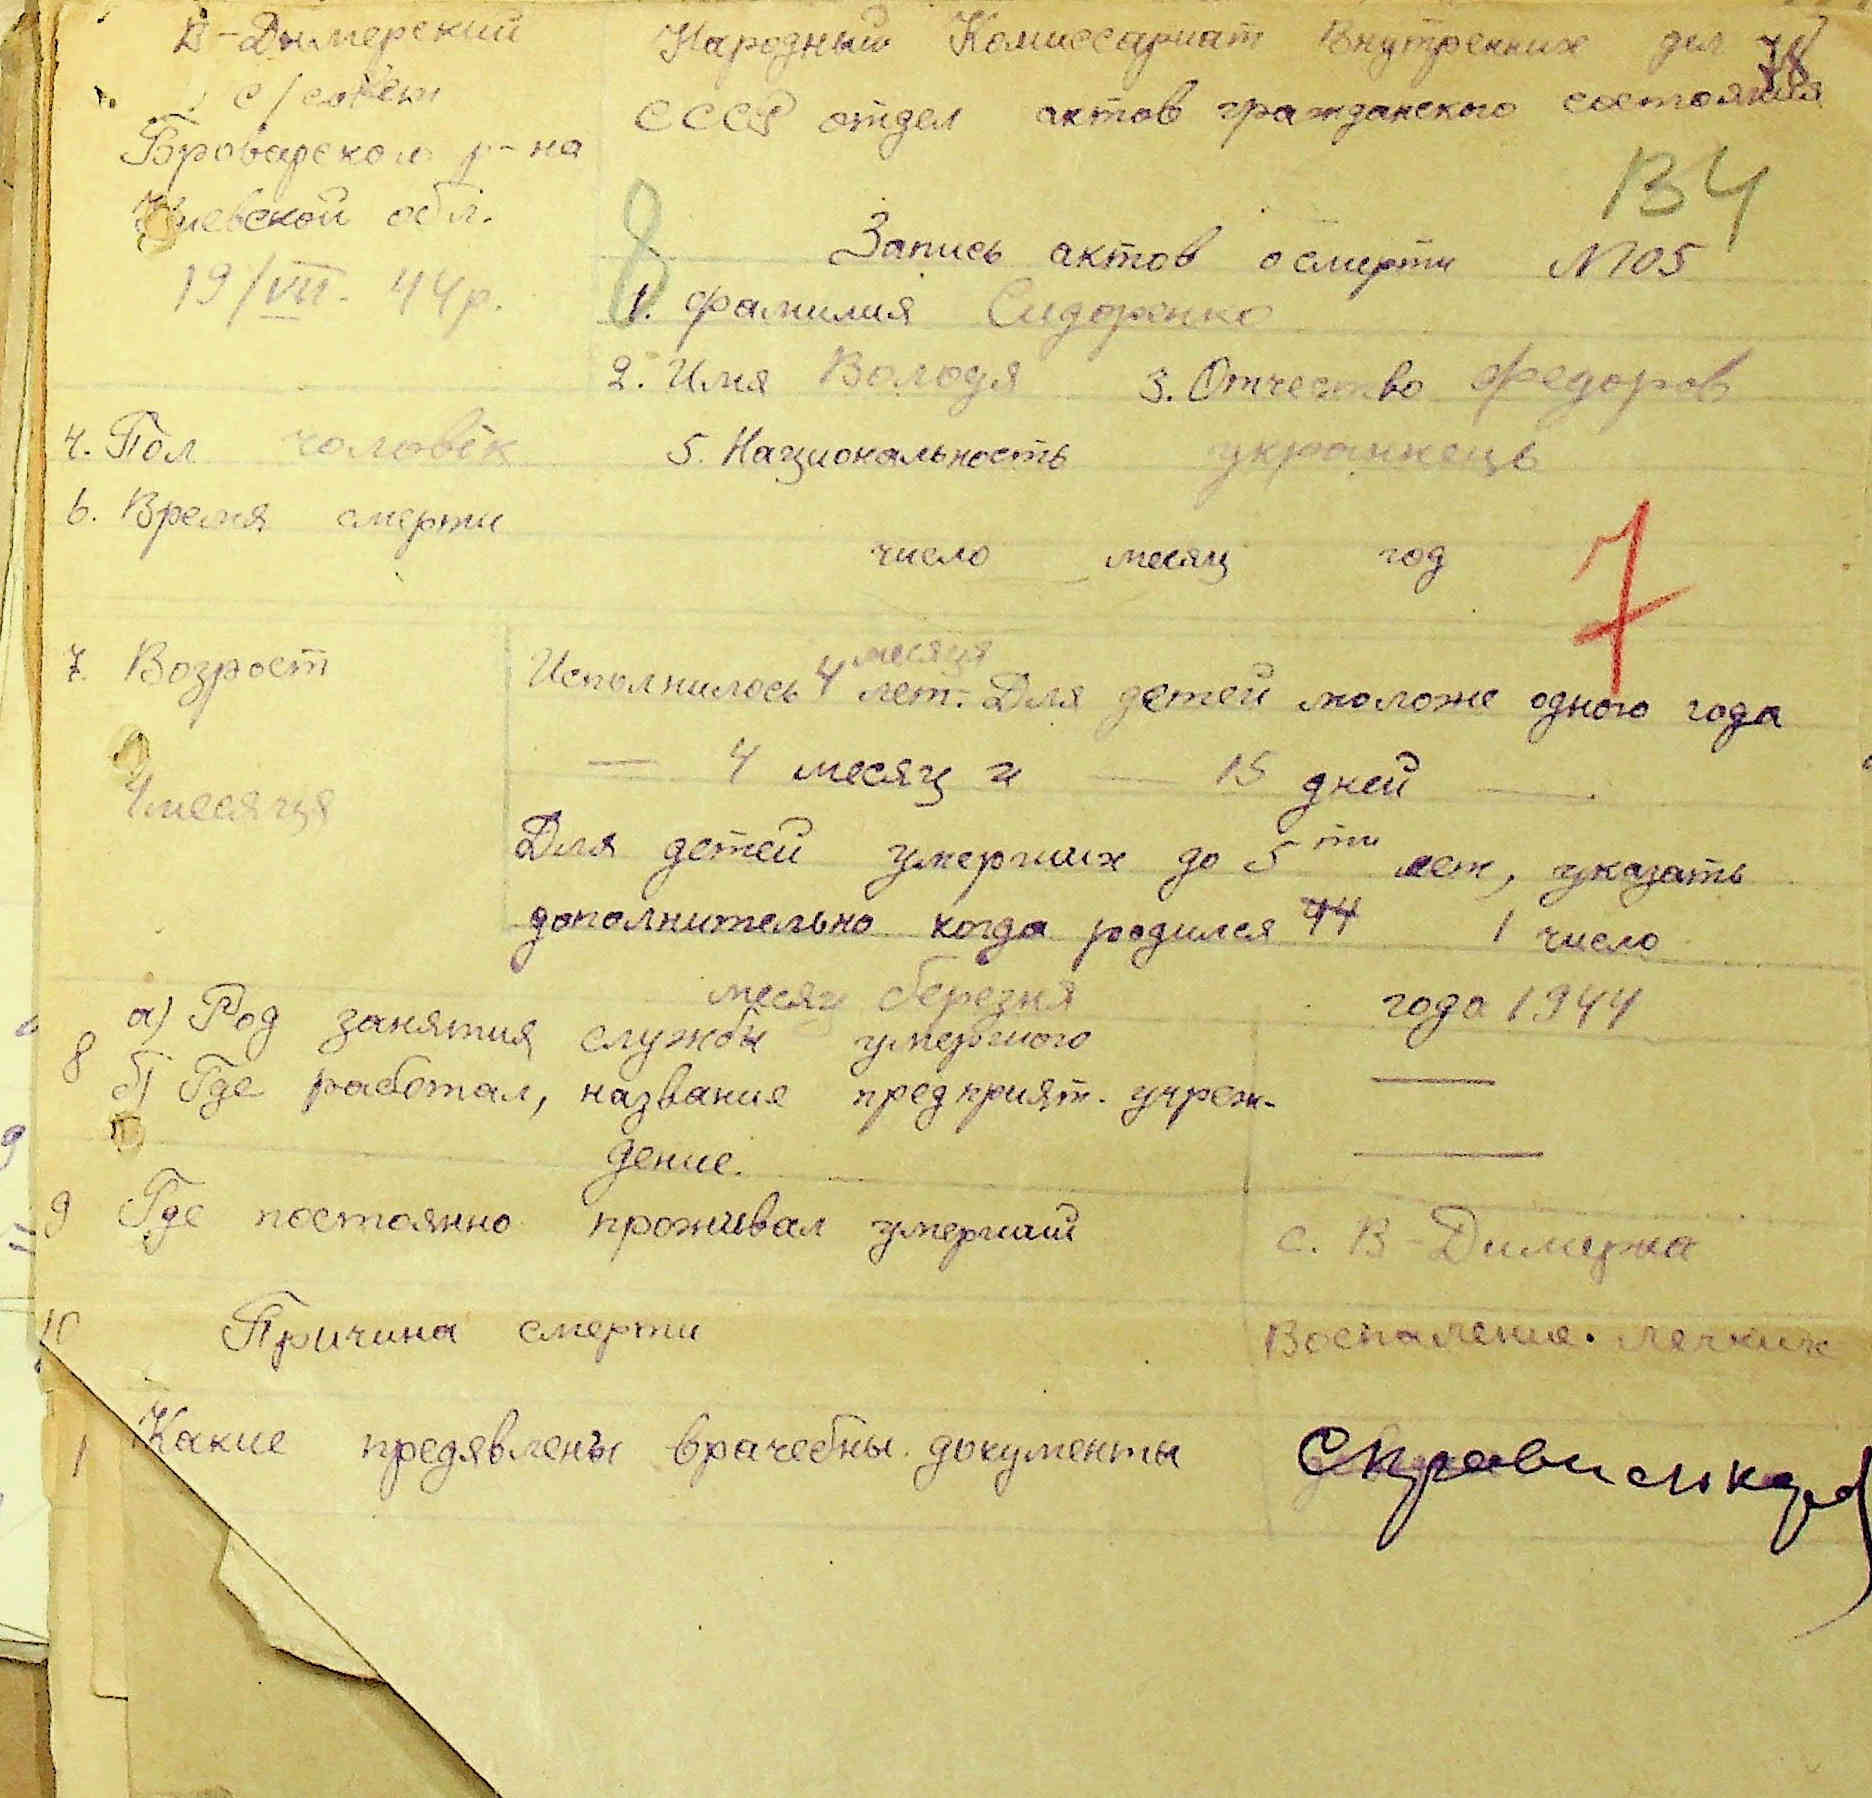 В-Димерский
с/совет
Броварском р-на
Киевской обл.
19/VII. 44р.
Народный Комиссариат Внутренних дел
СССР отдел актов гражданского состояния
В4
8
Запись актов о смерти №05
1. Фамилия Сидоренко
2. Имя Володя 3. Отчество Федоров
4. Пол чоловік 5. Национальность украинець
6. Время смерти
число месяц год
7
7. Возрост
4 месяця
месяця
Исполнилось 4 лет. Для детей моложе одного года
— 4 месяц и — 15 дней —
Для детей умерших до 5ти лет, указать
дополнительно когда родился 44 1 число
месяц березня года 1944
8 а) Род занятия службы умершого —
б) Где работал, название предприят. учреж-
дение. —
9 Где постоянно проживал умерший с. В-Димерка
10 Причина смерти Воспаление легких
Какие предявлены врачебны документы